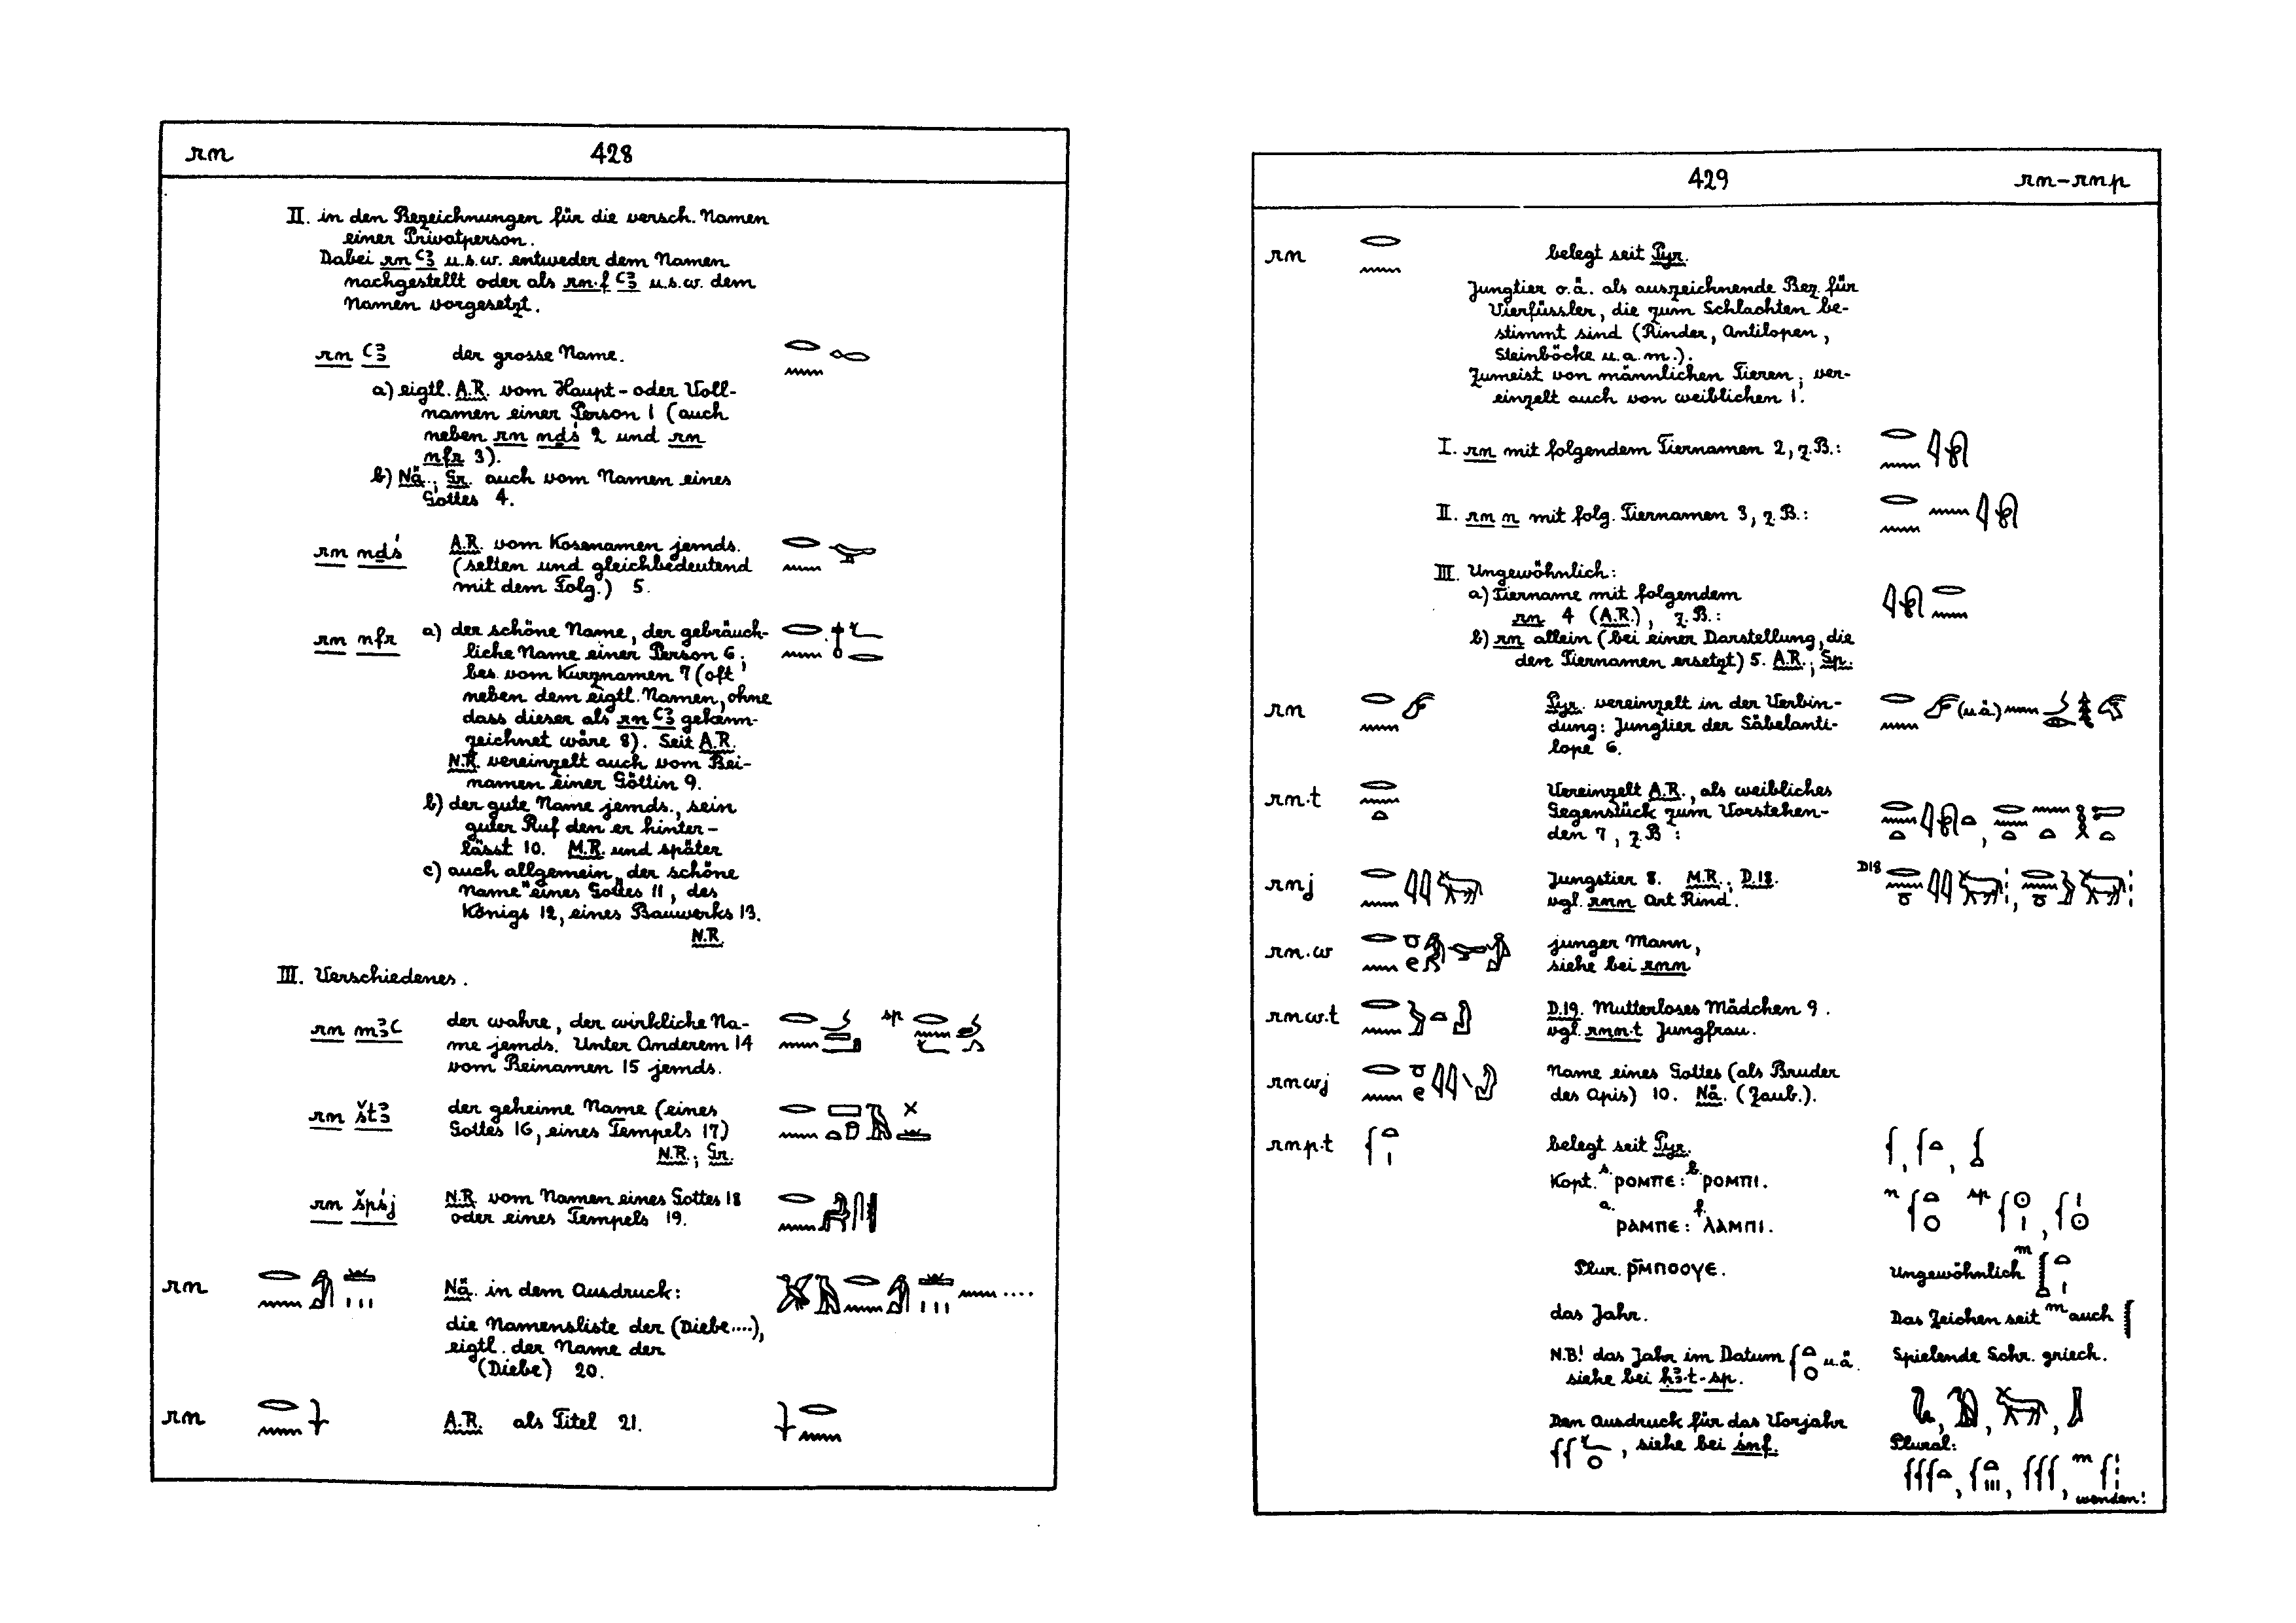 rn 428
II. in den Bezeichnungen für die versch. Namen
einer Privatperson.
Dabei rn ꜥꜣ u.s.w. entweder dem Namen
nachgestellt oder als rn·f ꜥꜣ u.s.w. dem
Namen vorgesetzt.
rn ꜥꜣ der grosse Name. 𓂋𓈖𓉻
a) eigtl. A.R. vom Haupt- oder Voll-
namen einer Person 1 (auch
neben rn nḏś 2 und rn
nfr 3).
b) Nä.; Gr. auch vom Namen eines
Gottes 4.
rn nḏś A.R. vom Kosenamen jemds.
(selten und gleichbedeutend
mit dem Folg.) 5.
rn nfr a) der schöne Name, der gebräuch-
liche Name einer Person 6;
bes. vom Kurznamen 7 (oft
neben dem eigtl. Namen, ohne
dass dieser als rn ꜥꜣ gekenn-
zeichnet wäre 8). Seit A.R.
N.R. vereinzelt auch vom Bei-
namen einer Göttin 9.
b) der gute Name jemds., sein
guter Ruf den er hinter-
lässt 10. M.R. und später
c) auch allgemein „der schöne
Name" eines Gottes 11, des
Königs 12, eines Bauwerks 13.
N.R.
III. Verschiedenes.
rn mꜣꜥ der wahre, der wirkliche Na- sp
me jemds. Unter Anderem 14
vom Beinamen 15 jemds.
rn štꜣ der geheime Name (eines
Gottes 16, eines Tempels 17)
N.R.; Gr.
rn špśj N.R. vom Namen eines Gottes 18
oder eines Tempels 19.
rn Nä. in dem Ausdruck: ....
die Namensliste der (Diebe....),
eigtl. der Name der
(Diebe) 20.
rn A.R. als Titel 21.
429 rn–rnp
rn 𓂋𓈖 belegt seit Pyr.
Jungtier o.ä. als auszeichnende Bez. für
Vierfüssler, die zum Schlachten be-
stimmt sind (Rinder, Antilopen,
Steinböcke u.a.m.).
Zumeist von männlichen Tieren; ver-
einzelt auch von weiblichen 1.
I. rn mit folgendem Tiernamen 2, z.B.:
II. rn n mit folg. Tiernamen 3, z.B.:
III. Ungewöhnlich:
a) Tiername mit folgendem
rn 4 (A.R.), z.B.:
b) rn allein (bei einer Darstellung, die
den Tiernamen ersetzt) 5. A.R.; Sp.
rn Pyr. vereinzelt in der Verbin- (u.ä)
dung: Jungtier der Säbelanti-
lope 6.
rn·t 𓂋𓈖𓏏 Vereinzelt A.R., als weibliches
Gegenstück zum Vorstehen-
den 7, z.B:
rnj Jungstier 8. M.R.; D.18. D18
vgl. rnn Art Rind.
rn·w junger Mann,
siehe bei rnn
rnw·t D.19. Mutterloses Mädchen 9.
vgl. rnn·t Jungfrau.
rnwj Name eines Gottes (als Bruder
des Apis) 10. Nä. (Zaub.).
rnp·t 𓆳𓏏𓏤 belegt seit Pyr.
Kopt. s. ⲣⲟⲙⲡⲉ: b. ⲣⲟⲙⲡⲓ. n sp
a. ⲣⲁⲙⲡⲉ: f. ⲗⲁⲙⲡⲓ.
Plur. ⲣⲙ̄ⲡⲟⲟⲩⲉ. Ungewöhnlich m
das Jahr. Das Zeichen seit m auch
N.B! das Jahr im Datum u.ä. Spielende Schr. griech.
siehe bei ḥꜣ·t-sp.
Den Ausdruck für das Vorjahr
, siehe bei śnf. Plural:
m
wenden!